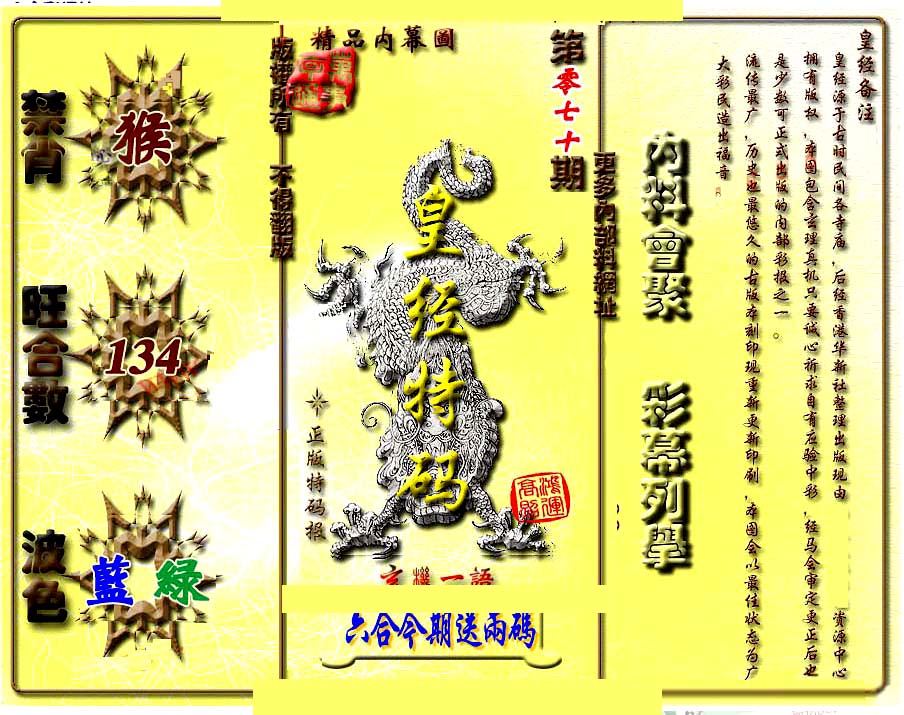 精品内幕圖
版權所有 不得翻版
第零七十期
更多內部料網址
禁肖
猴
旺合數
134
波色
藍 綠
皇经特码
正版特码报
鴻運高照
玄機一語
六合今期送兩碼
内料會聚 彩幕列舉
皇经备注
皇经源于古时民间各寺庙,后经香港华新社整理出版现由 资源中心
拥有版权,本图包含玄理真机只要诚心祈求自有应验中彩,经马会审定更正后也
是少数可正式出版的内部彩报之一。
流传最广,历史也最悠久的古版本刻印现重新更新印刷,本图会以最佳状态为广
大彩民造出福音